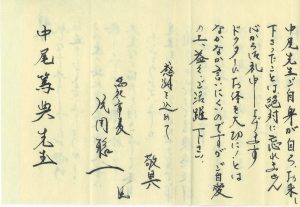 中尾先生ご自身が自らお来
下さったことは絶対に忘れません
心から御礼申し上げます
ドクターにお体を大切に！とは
なかなか言いにくいのですが、ご自愛
の上、益々ご活躍下さい。
感謝を込めて
敬具
中尾篤典先生